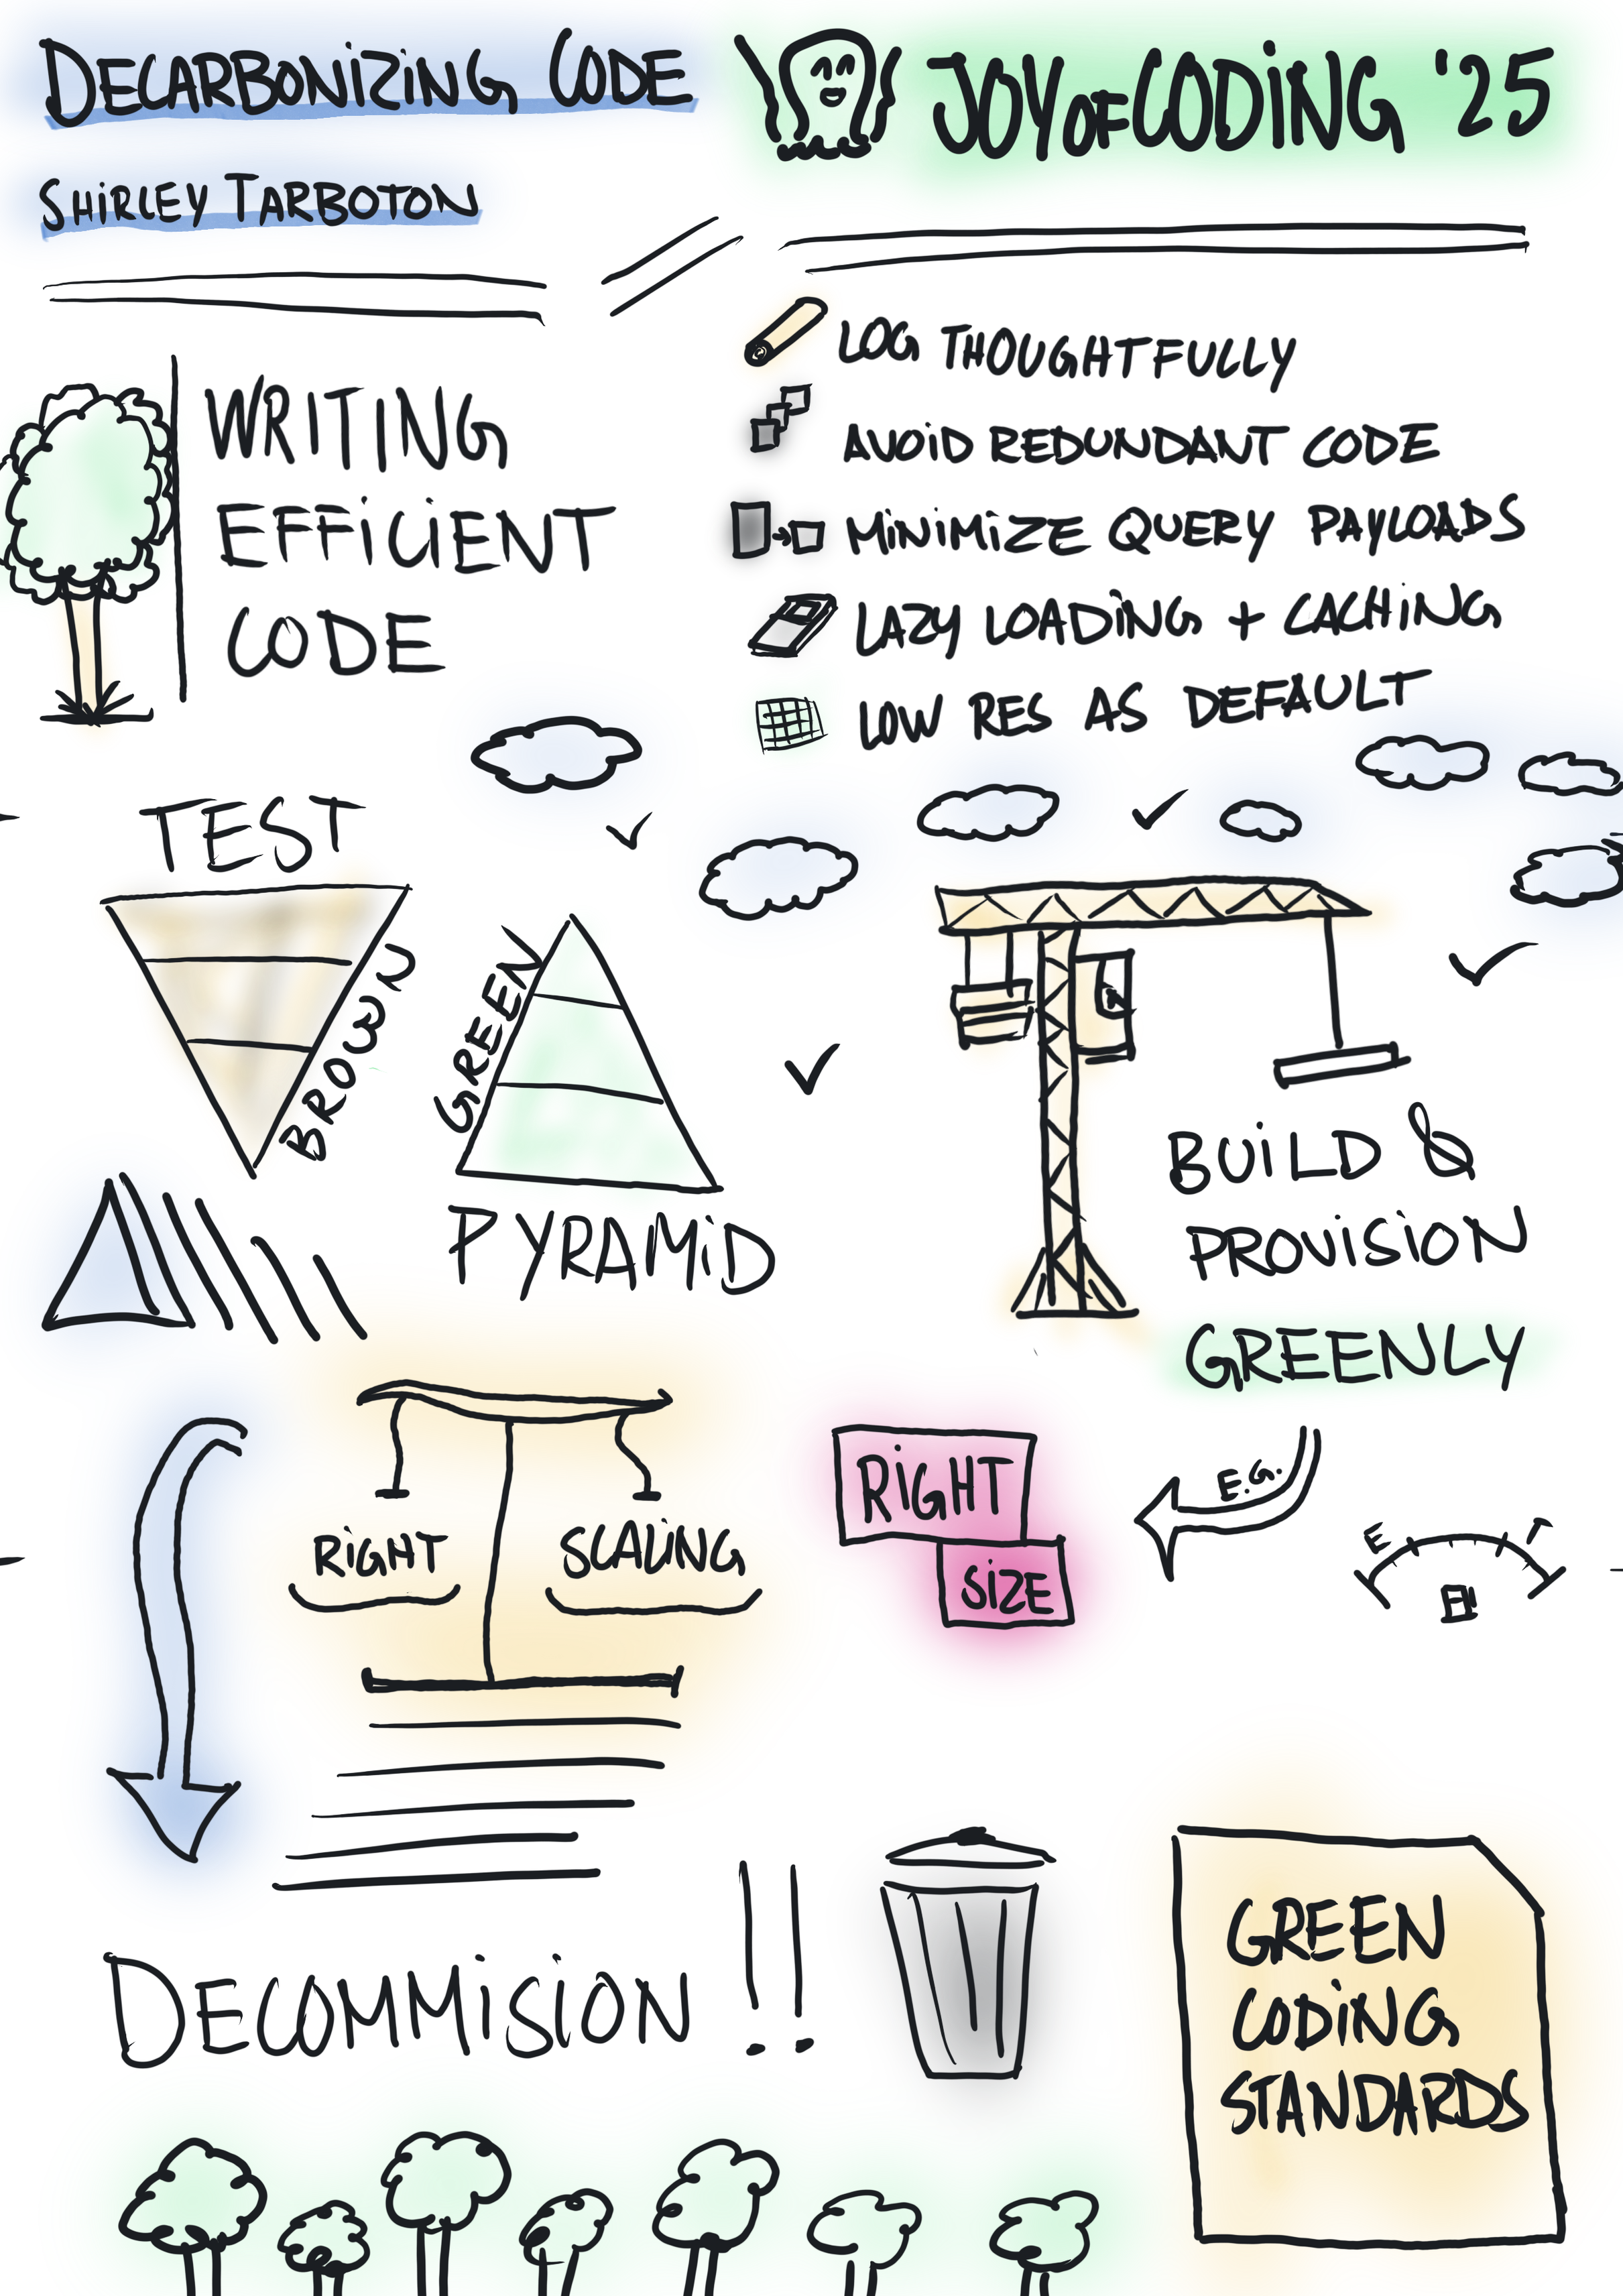 DECARBONIZING CODE
JOY OF CODING '25
SHIRLEY TARBOTON
WRITING
EFFICIENT
CODE
LOG THOUGHTFULLY
AVOID REDUNDANT CODE
MINIMIZE QUERY PAYLOADS
LAZY LOADING + CACHING
LOW RES AS DEFAULT
TEST
BROWN
GREEN
PYRAMID
BUILD &
PROVISION
GREENLY
RIGHT SCALING
RIGHT
SIZE
E.G.
E
DECOMMISION !!
GREEN
CODING
STANDARDS